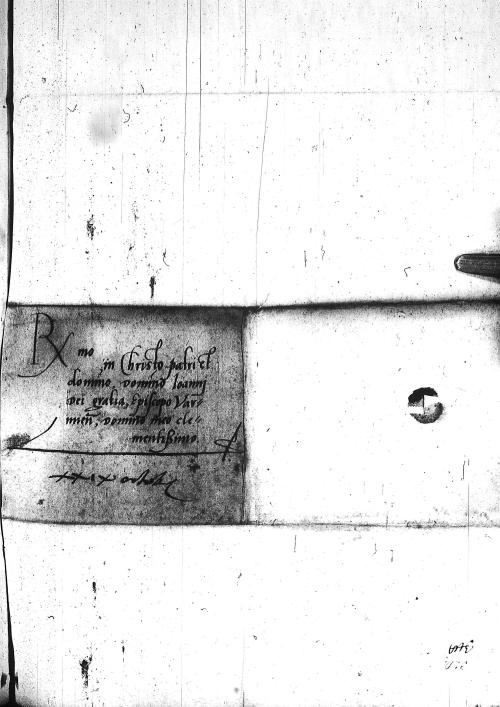 Rmo
in Christo patri et
domino, domino Ioanni
dei gratia, Episcopo Var-
mien, domino meo cle-
mentissimo.